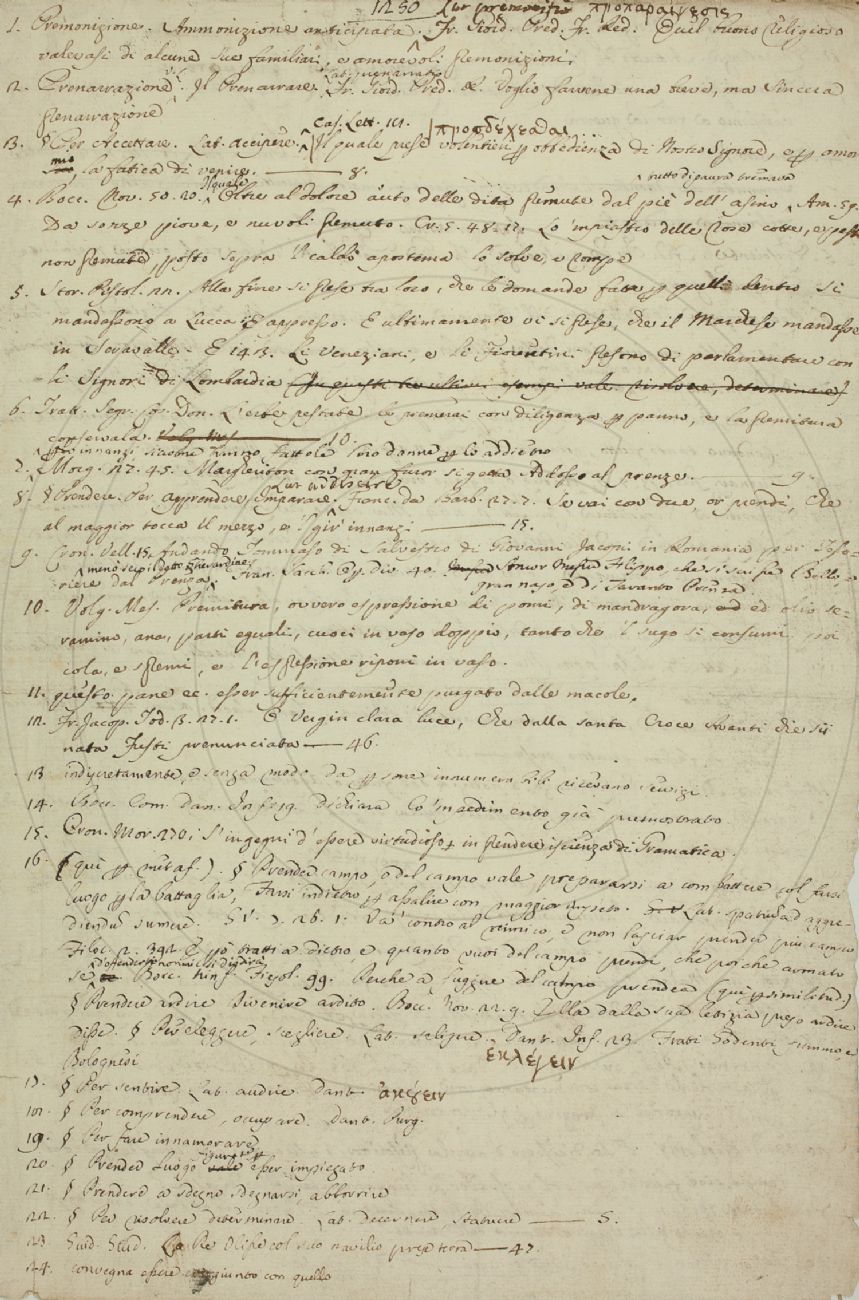 1250 Lat. premonitio προπαραίνεσις
1. Premonizione. Ammonizione anticipata. Fr. Giord. Pred. Fr. Red. Quel buono Religioso
valevasi di alcune sue familiari, e amorevoli premonizioni.
2. Prenarrazione. Il Prenarrare. Fr. Giord. Pred. R. Voglio farvene una breve, ma sincera
prenarrazione
Cas. Lett. προσδέχεσθαι
3. § Per Accettare. Lat. accipere. Il quale prese volentieri obbedienza di Nostro Signore, e amor
mio, la fatica di venire. 8.
Il quale tutto di paura tremava
4. Bocc. Nov. 50. 20. Oltre al dolore avuto delle dita premute dal piè dell'asino Am. 59.
Da sorze piove, e nuvoli premuto. Cr. 5. 48. 12. Lo 'mpiastro delle rose cotte, e poste
non premute, posto sopra 'l caldo apostema lo solve, e rompe
5. Stor. Pistol. 22. Alla fine si prese tra loro, che le domande fatte quelli dentro si
mandassono a Lucca E appresso. E ultimamente vi si prese, che il Marchese mandasse
in Seravalle. E 143. Li Veneziani, e li Fiorentini presono di parlamentare con
li Signori di Lombardia (In questi tre ultimi esempi vale risolvere, determinare)
6. Tratt. Segr. cos. Don. L'erbe pestate le premerai con diligenza panno, e la premitura
conservala. 10.
7. Morg. 27. 45. Margheriton con gran furor si getta Addosso al prenze. 9.
Lat. addiscere
8. § Prendere. Per apprendere Imparare. Franc. da Barb. 27. 7. Se vai con due, or prendi, che
al maggior tocca il mezzo, e 'l gir innanzi 15.
9. Cron. Vell. 15. Andando Tommaso di Salvestro di Giovanni Jaconi in Romania per Teso-
riere dal Prenza. Fran. Sacch. Op. Div. 40. Messer Filippo, che si fu bello, e
gran naso, e di Taranto Prenza.
10. Volg. Mes. Premitura, ovvero espressione di pomi, di mandragora, ed olio se-
ramino, ana, parti eguali, cuoci in vaso doppio, tanto che 'l sugo si consumi, poi
cola, e premi, e l'espressione riponi in vaso.
11. questo pane ec. esser sufficientemente purgato dalle macole.
12. Fr. Jacop. Tod. 3. 27. 1. O Vergin clara luce, Che dalla santa Croce Avanti che sii
nata Fusti prenunciata 46.
13 indiscretamente e senza modo da persone innumerabili ricevano servizi
14. Bocc. Com. Dan. Inf. dichiara lo 'mpedimento già premostrato
15. Cron. Mor. 270. S'ingegni d'essere virtudioso in prendere iscienza di Gramatica.
16 (qui metaf.). § Prender campo, o del campo vale prepararsi a combattere col farsi
luogo la battaglia, Farsi indietro assalire con maggior impeto. Lat. spatium ad aggre-
diendum sumere. Va' contro al nimico, e non lasciar prender più campo
Filoc. 2. 342 E tratti a dietro, e quanto vuoi del campo prendi, che poichè armato
se Bocc. Ninf. Fiesol. 99. Perchè a fuggire del campo prendea (qui similitud.)
§ Prendere ardire Divenire ardito. Bocc. Nov. 22. 9. Ella dalla sua letizia preso ardire
disse. § Per eleggere, scegliere. Lat. seligere. Dant. Inf. 23. Frati Godenti fummo, e
Bolognesi ἐκλέγειν
17. § Per sentire Lat. audire Dant. ἀκούειν
18. § Per comprendere, occupare. Dant. Purg.
19. § Per fare innamorare
20. § Prender Luogo vale esser impiegato
21. § Prendere a sdegno Sdegnarsi, abborrire
22. § Per risolvere determinare. Lat. Decernere, statuere 5.
23 Guid. Giud. Lo Re Ulisse col suo navilio prese terra 47.
24. convegna essere congiunto con quello